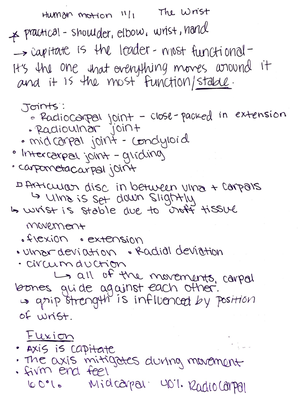 Human motion 11/1 The Wrist
* practical - shoulder, elbow, wrist, hand
→ capitate is the leader - most functional -
It's the one that everything moves around it
and it is the most function/stable.
Joints:
• Radiocarpal joint - close-packed in extension
• Radioulnar joint
• midcarpal joint - condyloid
• Intercarpal joint - gliding
• carpometacarpal joint
Articular disc in between ulna + carpals
↳ Ulna is set down slightly
↳ wrist is stable due to soft tissue
movement
• flexion • extension
• ulnar deviation • Radial deviation
• circumduction
↳ all of the movements, carpal
bones guide against each other.
→ grip strength is influenced by position
of wrist.
Flexion
• Axis is capitate
• The axis mitigates during movement
• firm end feel
60% Midcarpal 40% Radiocarpal